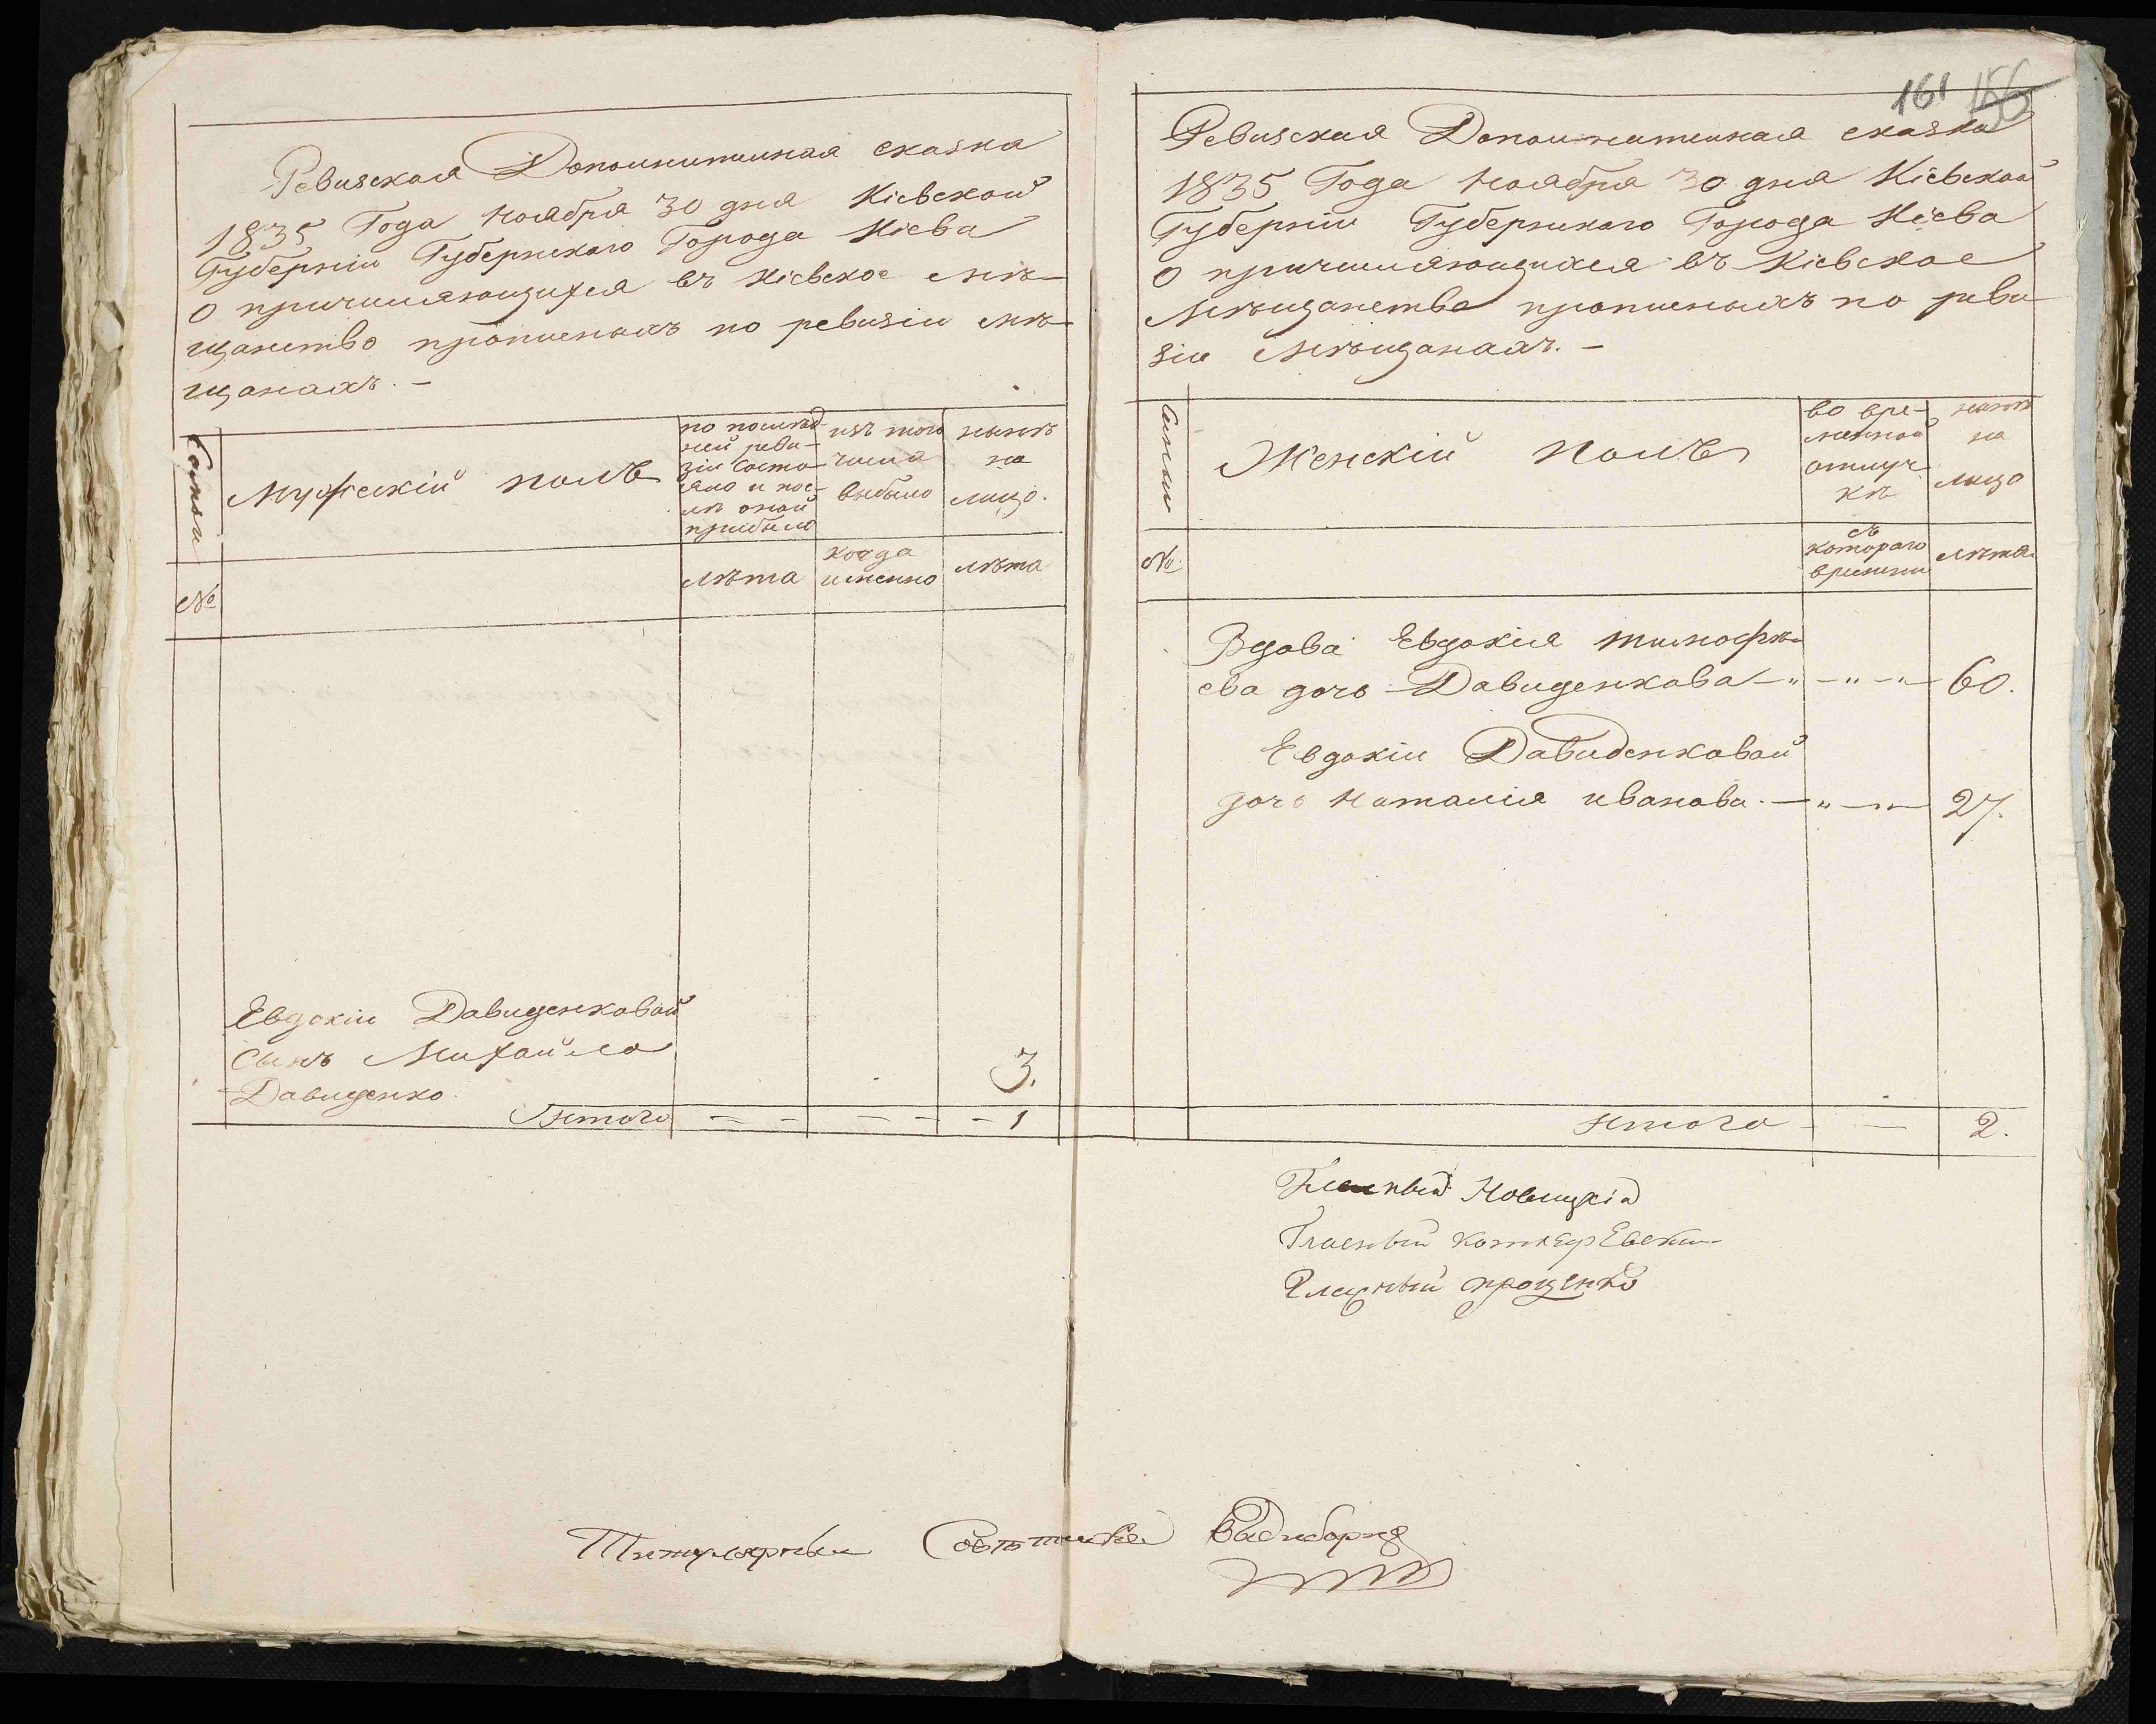 Ревизская Дополнительная сказка
1835 Года Ноября 30 дня Кіевской
Губерніи Губернскаго Города Кіева
О причисляющихся въ Кіевское мѣ-
щанство прописныхъ по ревизіи мѣ-
щанахъ. —
Семьи
Мужескій полъ
по послѣд
ней реви-
зіи состо-
яло и пос-
лѣ оной
прибыло
изъ того
числа
выбыло
нынѣ
на
лицо.
№
лѣта
когда
именно
лѣта
Евдокіи Давиденковой
Сынъ Михайло
Давиденко
3.
Итого — — — — — 1
161 156
Ревизская Дополнительная сказка
1835 Года Ноября 30 дня Кіевской
Губерніи Губернскаго Города Кіева
О причисляющихся въ Кіевское
Мѣщанство прописныхъ по реви
зіи Мѣщанахъ. —
Семьи
Женскій полъ
во вре-
менной
отлуч
кѣ
нынѣ
на
лицо
№
съ
котораго
времени
лѣта.
Вдова Евдокія тимофѣ-
ева дочь Давиденкова — „ — „ — „ — 60.
Евдокіи Давиденковой
дочь Наталія иванова. — „ — „ — 27.
Итого — — 2.
Гласный Новицкій
Гласный
Гласный проценко
Титулярный Совѣтникъ